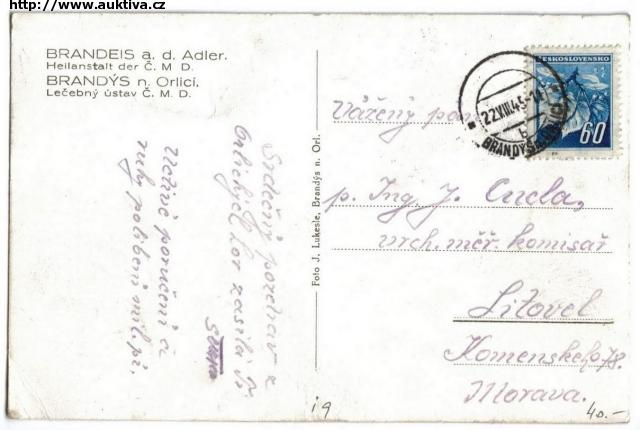 http://www.auktiva.cz
BRANDEIS a. d. Adler.
Heilanstalt der Č. M. D.
BRANDÝS n. Orlicí.
Léčebný ústav Č. M. D.
Srdečný pozdrav z
Orlických hor zasílá
Uctivé poručení a
ruky políbení mil.
Foto J. Lukesle, Brandýs n. Orl.
ČESKOSLOVENSKO
60
22.VIII.45
b
BRANDÝS
Vážený pan
p. Ing. J.
vrch. měř. komisař
Litovel
Komenského 78.
Morava.
19
40.-